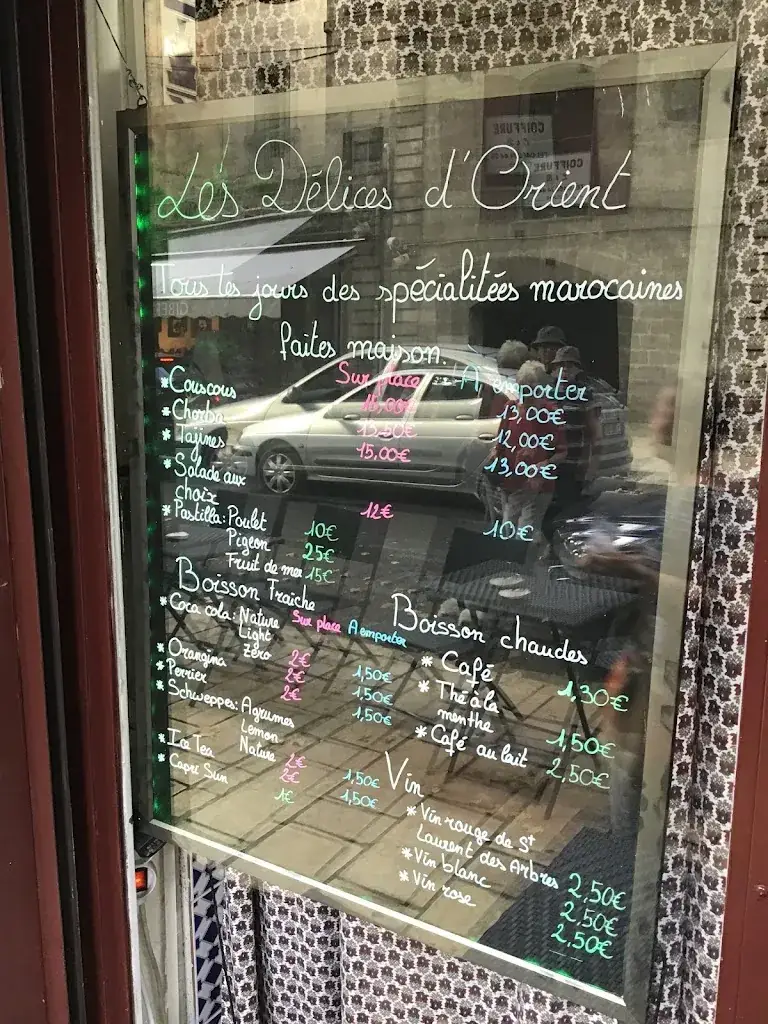 Les Délices d'Orient
Tous les jours des spécialitées marocaines
faites maison.
Sur place A emporter
*Couscous 15,00€ 13,00€
*Chorba 13,50€ 12,00€
*Tajines 15,00€ 13,00€
*Salade aux
choix 12€ 10€
*Pastilla: Poulet 10€
Pigeon 25€
Fruit de mer 15€
Boisson Fraiche
Sur place A emporter
*Coca cola: Nature
Light
Zéro 2€ 1,50€
*Orangina 2€ 1,50€
*Perrier 2€ 1,50€
*Schweppes: Agrumes
Lemon
Nature 2€ 1,50€
*Ice Tea 2€ 1,50€
*Capri Sun 1€
Boisson chaudes
*Café 1,30€
*Thé à la
menthe 1,50€
*Café au lait 2,50€
Vin
*Vin rouge de St
Laurent des Arbres 2,50€
*Vin blanc 2,50€
*Vin rose 2,50€
COIFFURE
COIFFURE